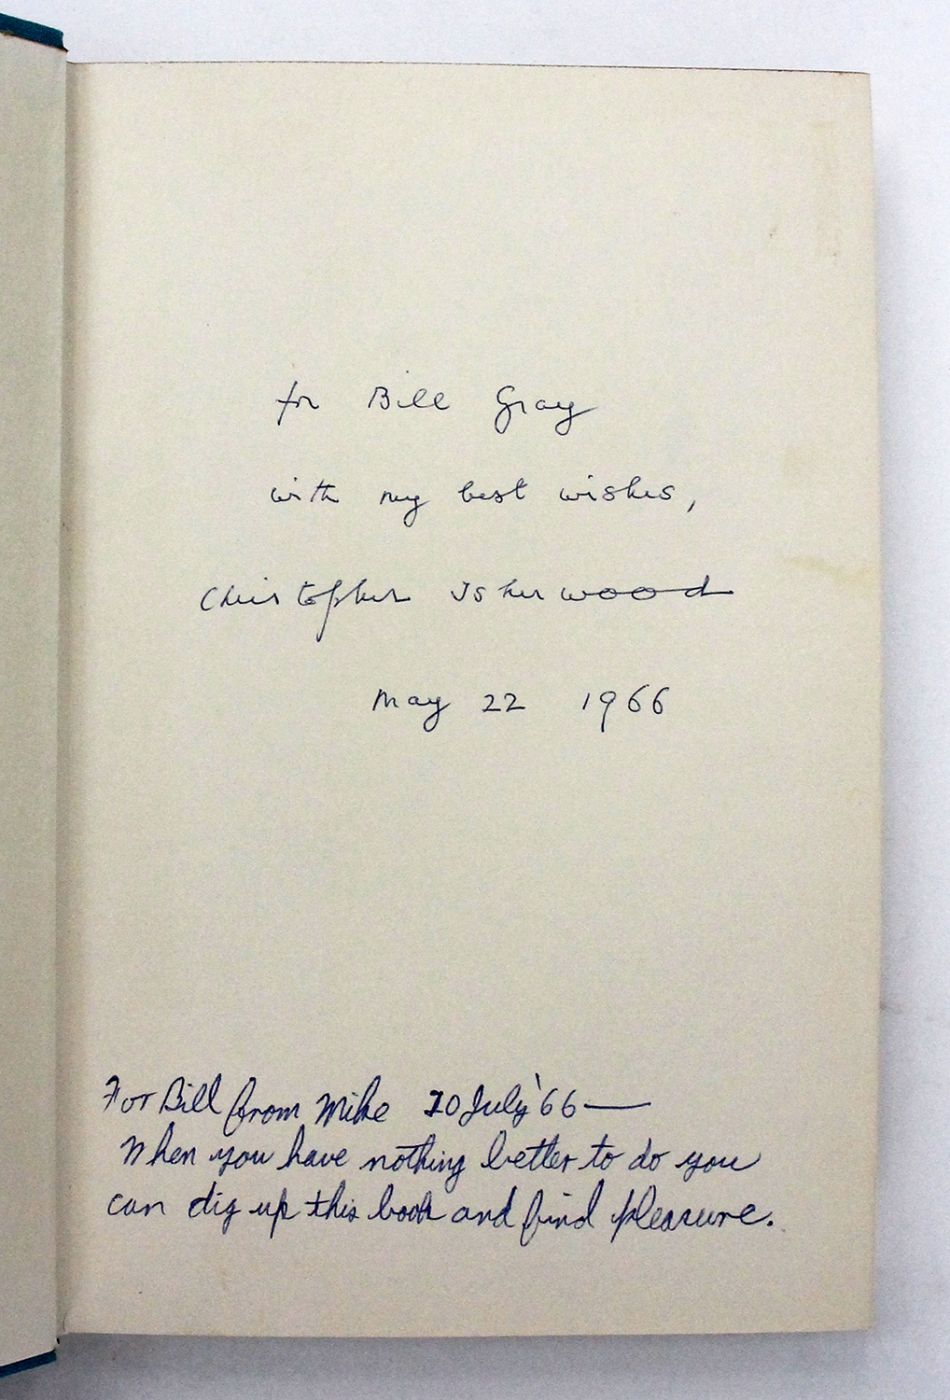 for Bill Gray
with my best wishes,
Christopher Isherwood
May 22 1966
For Bill from Mike 20 July '66—
When you have nothing better to do you
can dig up this book and find pleasure.